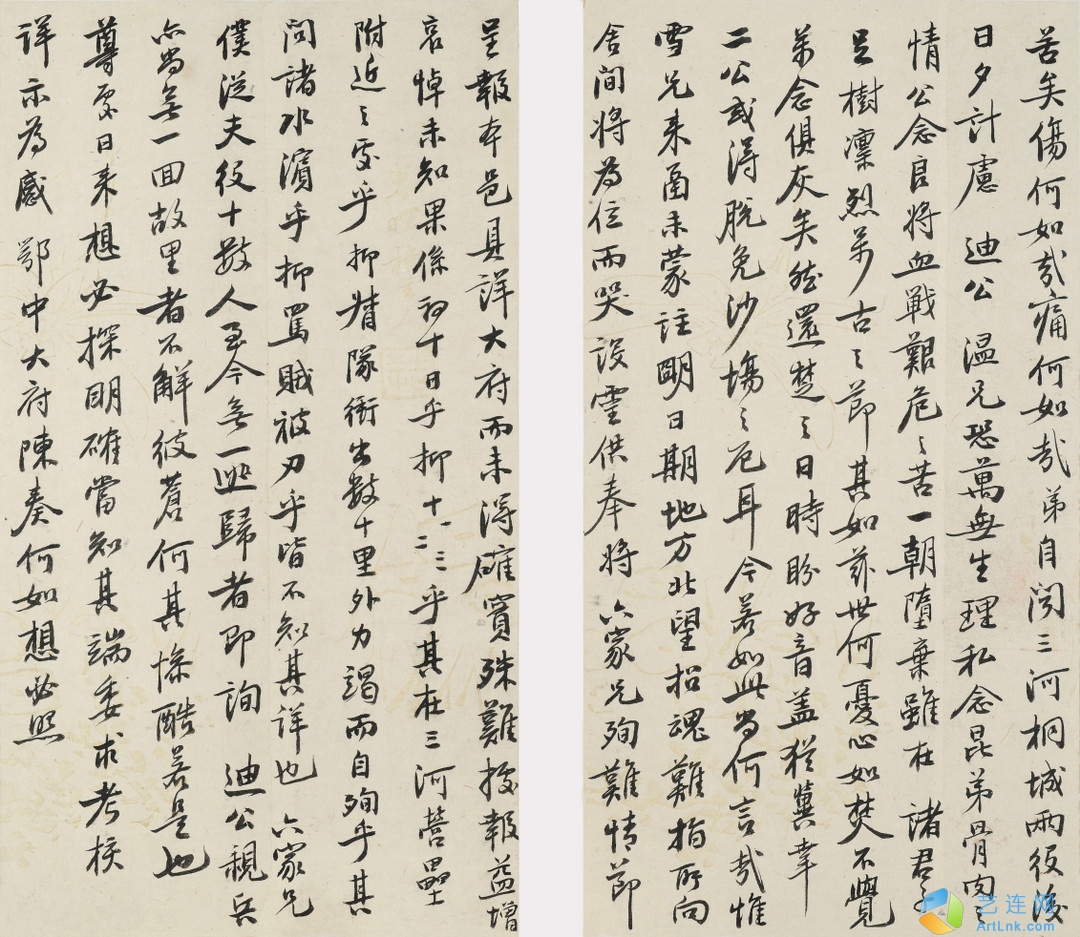 苦矣傷何如哉痛何如哉弟自闻三河桐城兩役後
日夕計慮 迪公 温兄恐萬無生理私念昆弟骨肉之
情公念良將血戰艱危之苦一朝隳棄雖在 諸君子
足樹凜烈萬古之節其如蒼世何憂心如焚不覺
萬念俱灰矣然還楚之日時盼好音盖猶冀幸
二公或得脱免沙場之厄耳今若如此尚何言哉惟
雪兄来函未蒙註明日期地方北望招魂難指所向
舍間將為位而哭設靈供奉將 六家兄殉難情節
呈報本邑具詳大府而未得確實殊難按報益增
哀悼未知果係初十日乎抑十一二三乎其在三河營壘
附近之處乎抑督隊衝出數十里外力竭而自殉乎其
問諸水濱乎抑罵賊被刃乎皆不知其詳也 六家兄
僕從夫役十數人至今無一逃歸者即詢 迪公親兵
亦尚無一回故里者不解彼蒼何其慘酷若是也
尊處日来想必探明確當知其端委求考核
詳示為感 鄂中大府陳奏何如想必照
艺连网
ArtLnk.com